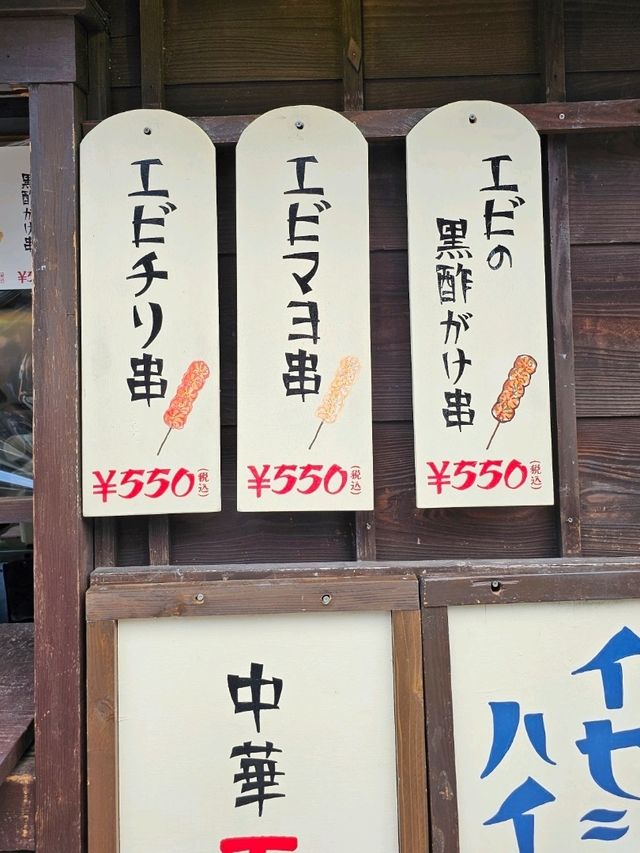 エビチリ串
¥550(税込)
エビマヨ串
¥550(税込)
エビの
黒酢がけ串
¥550(税込)
黒酢がけ串
中華